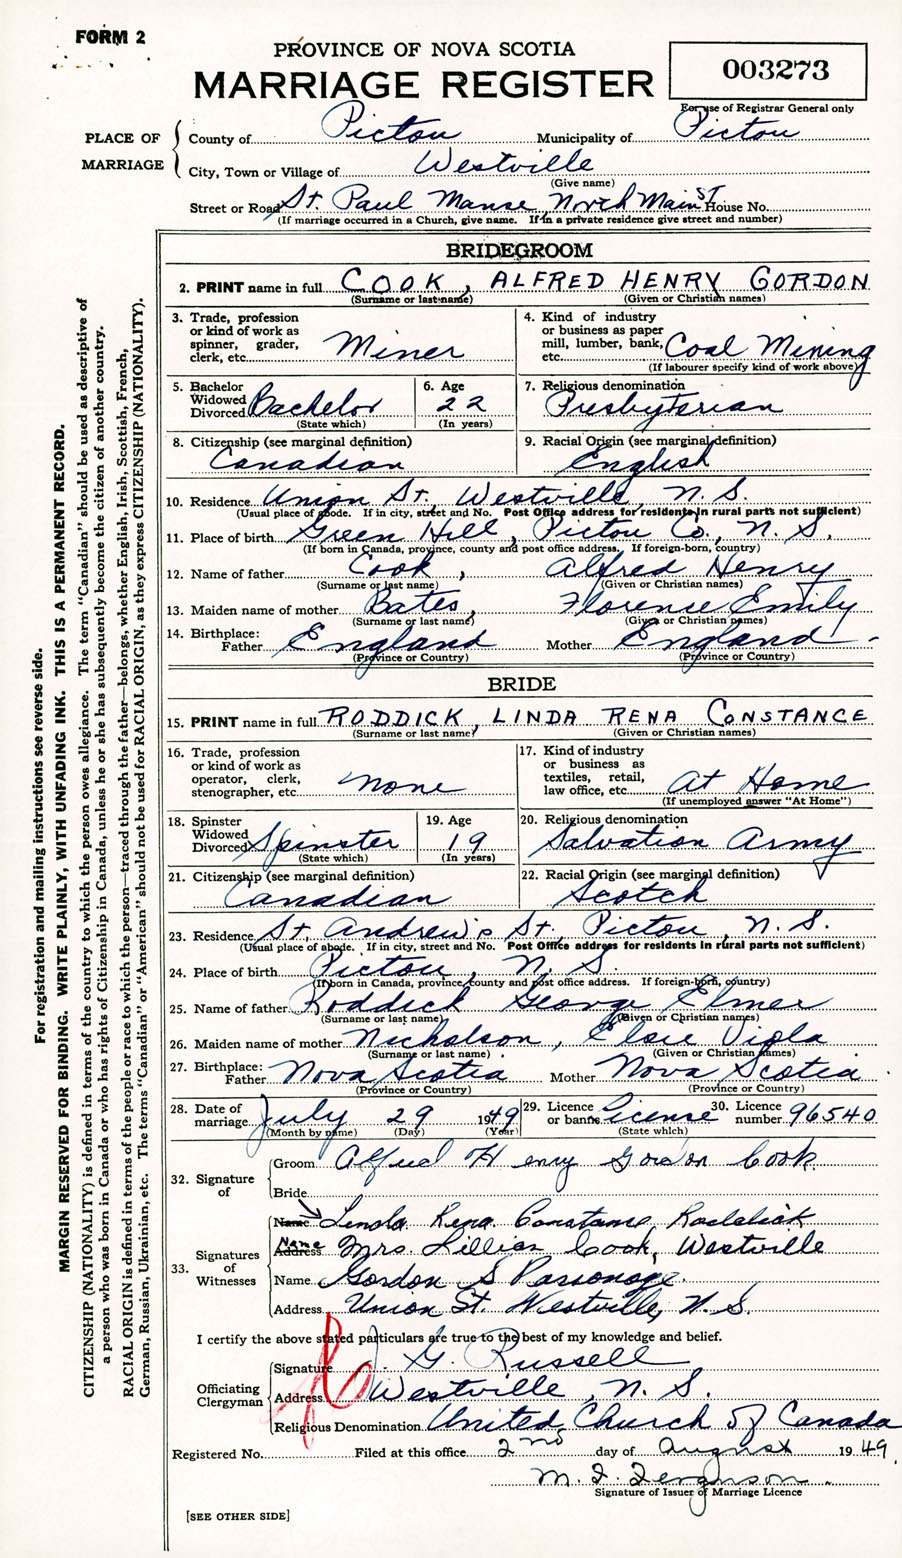 FORM 2
PROVINCE OF NOVA SCOTIA
MARRIAGE REGISTER
003273
For use of Registrar General only
PLACE OF MARRIAGE
County of Pictou Municipality of Pictou
City, Town or Village of Westville
(Give name)
Street or Road St. Paul Manse North Main ST House No.
(If marriage occurred in a Church, give name. If in a private residence give street and number)
BRIDEGROOM
2. PRINT name in full COOK, ALFRED HENRY GORDON
(Surname or last name) (Given or Christian names)
3. Trade, profession or kind of work as spinner, grader, clerk, etc. Miner
4. Kind of industry or business as paper mill, lumber, bank, etc. Coal Mining
(If labourer specify kind of work above)
5. Bachelor Widowed Divorced Bachelor
(State which)
6. Age 22
(In years)
7. Religious denomination Presbyterian
8. Citizenship (see marginal definition) Canadian
9. Racial Origin (see marginal definition) English
10. Residence Union St, Westville, N.S.
(Usual place of abode. If in city, street and No. Post Office address for residents in rural parts not sufficient)
11. Place of birth Green Hill, Pictou Co., N.S.
(If born in Canada, province, county and post office address. If foreign-born, country)
12. Name of father Cook, Alfred Henry
(Surname or last name) (Given or Christian names)
13. Maiden name of mother Bates, Florence Emily
(Surname or last name) (Given or Christian names)
14. Birthplace: Father England Mother England
(Province or Country) (Province or Country)
BRIDE
15. PRINT name in full RODDICK, LINDA RENA CONSTANCE
(Surname or last name) (Given or Christian names)
16. Trade, profession or kind of work as operator, clerk, stenographer, etc. none
17. Kind of industry or business as textiles, retail, law office, etc. At Home
(If unemployed answer "At Home")
18. Spinster Widowed Divorced Spinster
(State which)
19. Age 19
(In years)
20. Religious denomination Salvation Army
21. Citizenship (see marginal definition) Canadian
22. Racial Origin (see marginal definition) Scotch
23. Residence St. Andrew's St, Pictou, N.S.
(Usual place of abode. If in city, street and No. Post Office address for residents in rural parts not sufficient)
24. Place of birth Pictou, N.S.
(If born in Canada, province, county and post office address. If foreign-born, country)
25. Name of father Roddick George Elmer
(Surname or last name) (Given or Christian names)
26. Maiden name of mother Nicholson, Elsie Viola
(Surname or last name) (Given or Christian names)
27. Birthplace: Father Nova Scotia Mother Nova Scotia
(Province or Country) (Province or Country)
28. Date of marriage July 29 1949
(Month by name) (Day) (Year)
29. Licence or banns License
(State which)
30. Licence number 96540
32. Signature of
Groom Alfred Henry Gordon Cook
Bride
Name Linda Rena Constance Roddick
33. Signatures of Witnesses
Address Name Mrs. Lillian Cook, Westville
Name Gordon S Parsonage
Address Union St. Westville, N.S.
I certify the above stated particulars are true to the best of my knowledge and belief.
Officiating Clergyman
Signature J. G. Russell
Address Westville, N.S.
Religious Denomination United Church of Canada
Registered No. Filed at this office 2nd day of August 1949.
M. I. Ferguson.
Signature of Issuer of Marriage Licence
[SEE OTHER SIDE]
For registration and mailing instructions see reverse side.
MARGIN RESERVED FOR BINDING. WRITE PLAINLY, WITH UNFADING INK. THIS IS A PERMANENT RECORD.
CITIZENSHIP (NATIONALITY) is defined in terms of the country to which the person owes allegiance. The term "Canadian" should be used as descriptive of
a person who was born in Canada or who has rights of Citizenship in Canada, unless he or she has subsequently become the citizen of another country.
RACIAL ORIGIN is defined in terms of the people or race to which the person—traced through the father—belongs, whether English, Irish, Scottish, French,
German, Russian, Ukrainian, etc. The terms "Canadian" or "American" should not be used for RACIAL ORIGIN, as they express CITIZENSHIP (NATIONALITY).